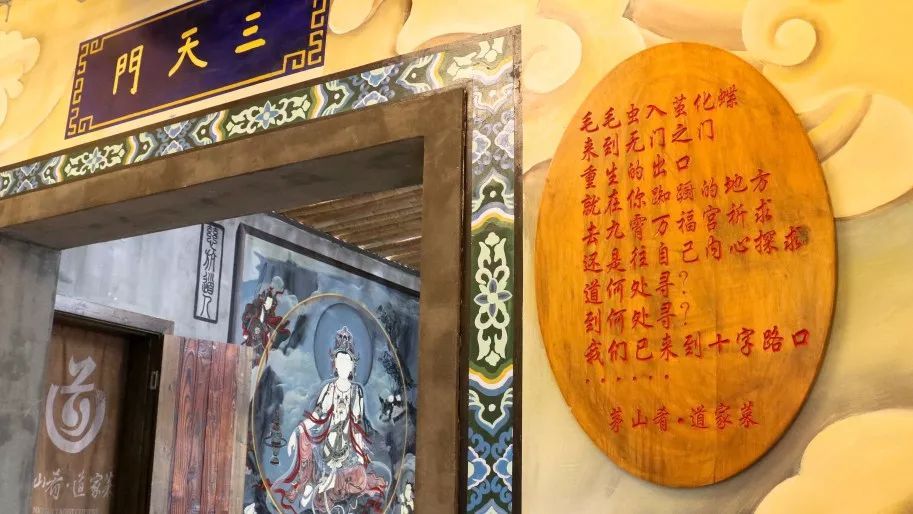 三天門
毛毛虫入茧化蝶
来到无门之门
重生的出口
就在你踟蹰的地方
去九霄万福宫祈求
还是往自己内心探求
道何处寻?
到何处寻?
我们已来到十字路口
······
茅山肴·道家菜
道
山肴·道家菜